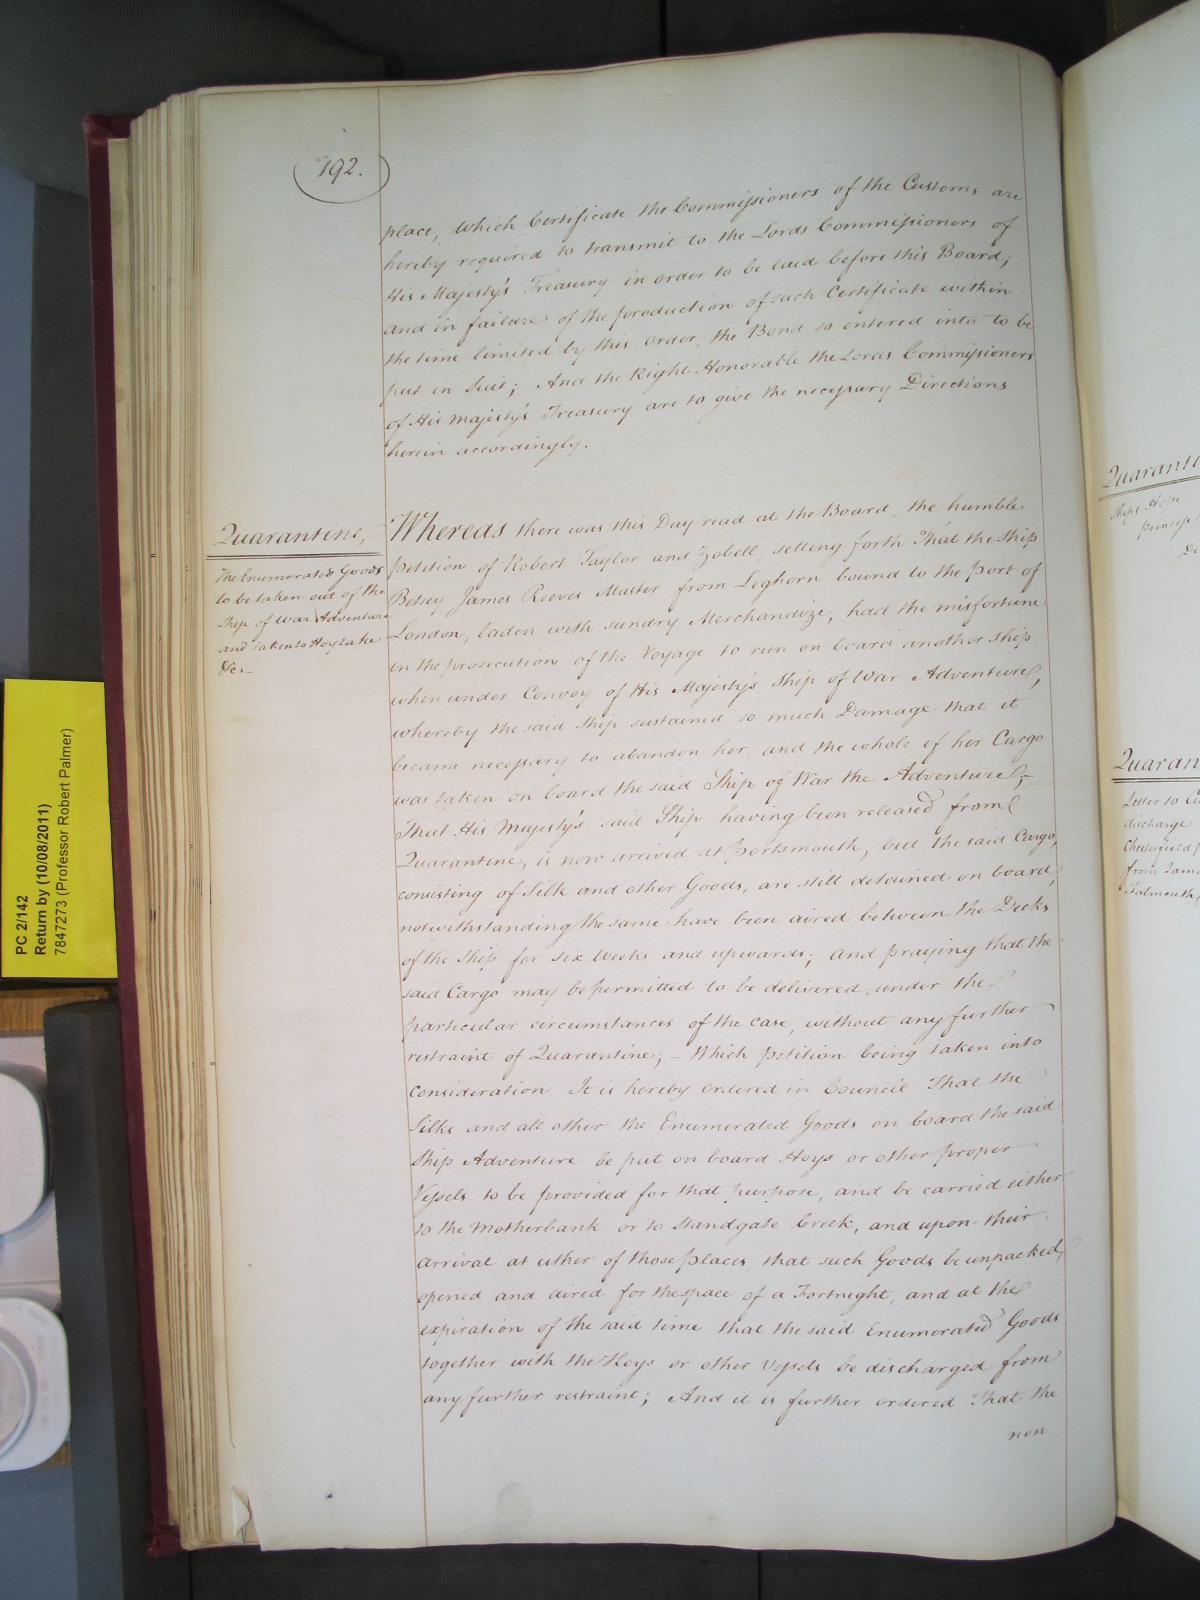 192.
place, which Certificate the Commissioners of the Customs are
hereby required to transmit to the Lords Commissioners of
His Majesty's Treasury in order to be laid before this Board;
and in failure of the production of such Certificate within
the time limited by this Order, the Bond so entered into to be
put in Suit; And the Right Honorable the Lords Commissioners
of His Majesty's Treasury are to give the necessary Directions
herein accordingly.
Quarantine,
The Enumerated Goods
to be taken out of the
Ship of War Adventure
and taken to Hoylake
&c.-
Whereas there was this Day read at the Board, the humble
Petition of Robert Taylor and Zobell, setting forth That the Ship
Betsey James Reeves Master from Leghorn bound to the Port of
London, laden with sundry Merchandize, had the misfortune
in the prosecution of the Voyage to run on board another Ship
when under Convoy of His Majesty's Ship of War Adventure,
whereby the said Ship sustained so much Damage that it
became necessary to abandon her, and the whole of her Cargo
was taken on board the said Ship of War the Adventure;-
That His Majesty's said Ship having been released from
Quarantine, is now arrived at Portsmouth, but the said Cargo,
consisting of Silk and other Goods, are still detained on board,
notwithstanding the same have been aired between the Decks
of the Ship for six Weeks and upwards; and praying that the
said Cargo may be permitted to be delivered, under the
particular circumstances of the case, without any further
restraint of Quarantine; - Which Petition being taken into
consideration It is hereby ordered in Council That the
Silks and all other the Enumerated Goods on board the said
Ship Adventure be put on board Hoys or other proper
Vessels to be provided for that purpose, and be carried either
to the Motherbank or to Standgate Creek, and upon their
arrival at either of those places, that such Goods be unpacked,
opened and aired for the space of a Fortnight, and at the
expiration of the said time that the said Enumerated Goods
together with the Hoys or other Vessels be discharged from
any further restraint; And it is further ordered That the
non
PC 2/142
Return by (10/08/2011)
7847273 (Professor Robert Palmer)
Ships Hope
Letter to
discharge
Chesterfield
from
Falmouth